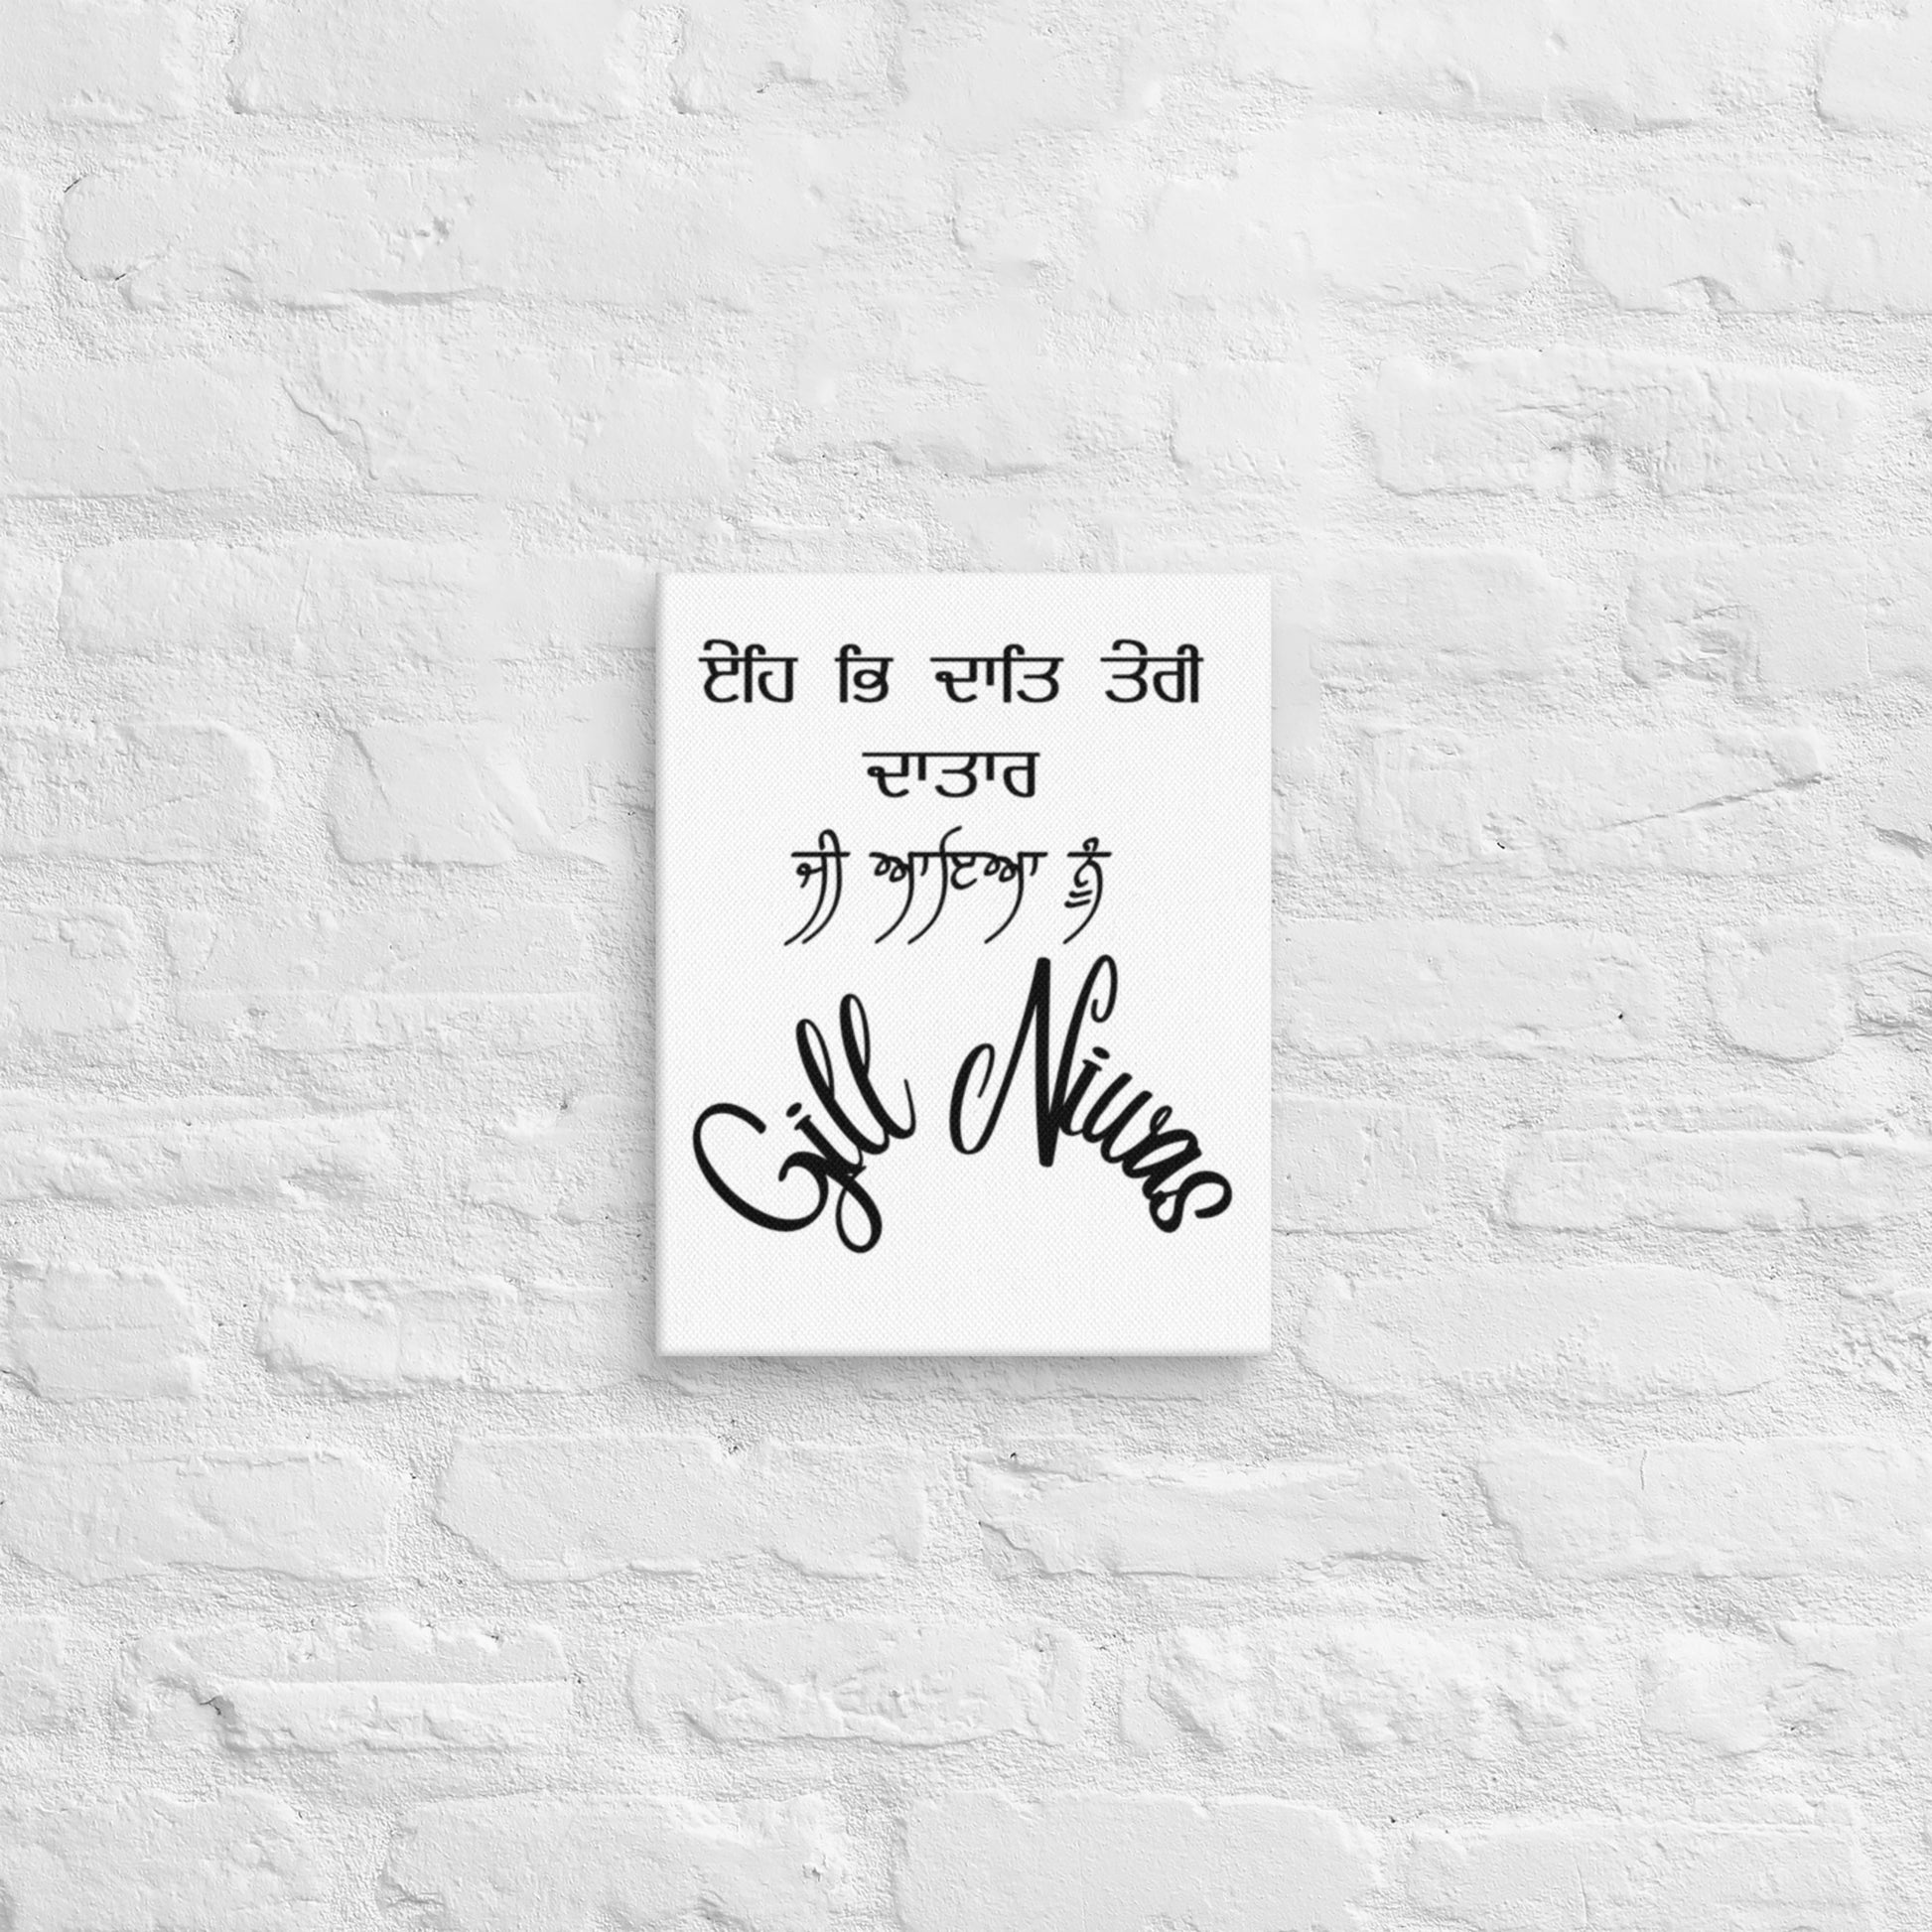 ਏਹਿ ਭਿ ਦਾਤਿ ਤੇਰੀ
ਦਾਤਾਰ
ਜੀ ਆਇਆ ਨੂੰ
Gill Niwas